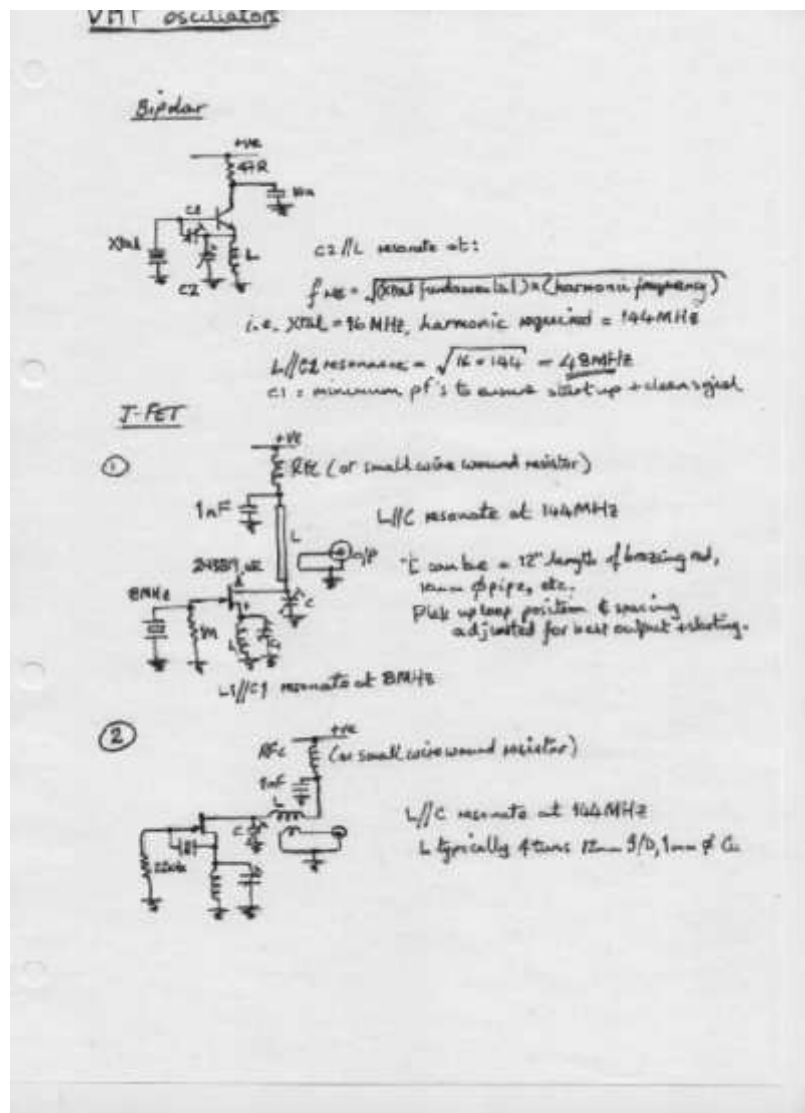 VHF oscillators
Bipolar
+ve
47R
10n
C1
Xtal
L
C2
C2//L resonate at:
f res = √(Xtal fundamental) × (harmonic frequency)
i.e. Xtal = 16 MHz, harmonic required = 144MHz
L//C2 resonance = √16 × 144 = 48MHz
C1 = minimum pf's to ensure start up + clean signal
J-FET
1
+ve
RFC (or small wire wound resistor)
1nF
L//C resonate at 144MHz
L
o/p
8MHz
C
1M
"L can be a 12" length of brazing rod,
10mm ø pipe, etc.
Pick up loop position & spacing
adjusted for best output + starting.
L1//C1 resonate at 8MHz
2
+ve
RFC
(or small wire wound resistor)
1nF
L
C
L//C resonate at 144MHz
L typically 4 turns 12mm I/D, 1mm ø Cu